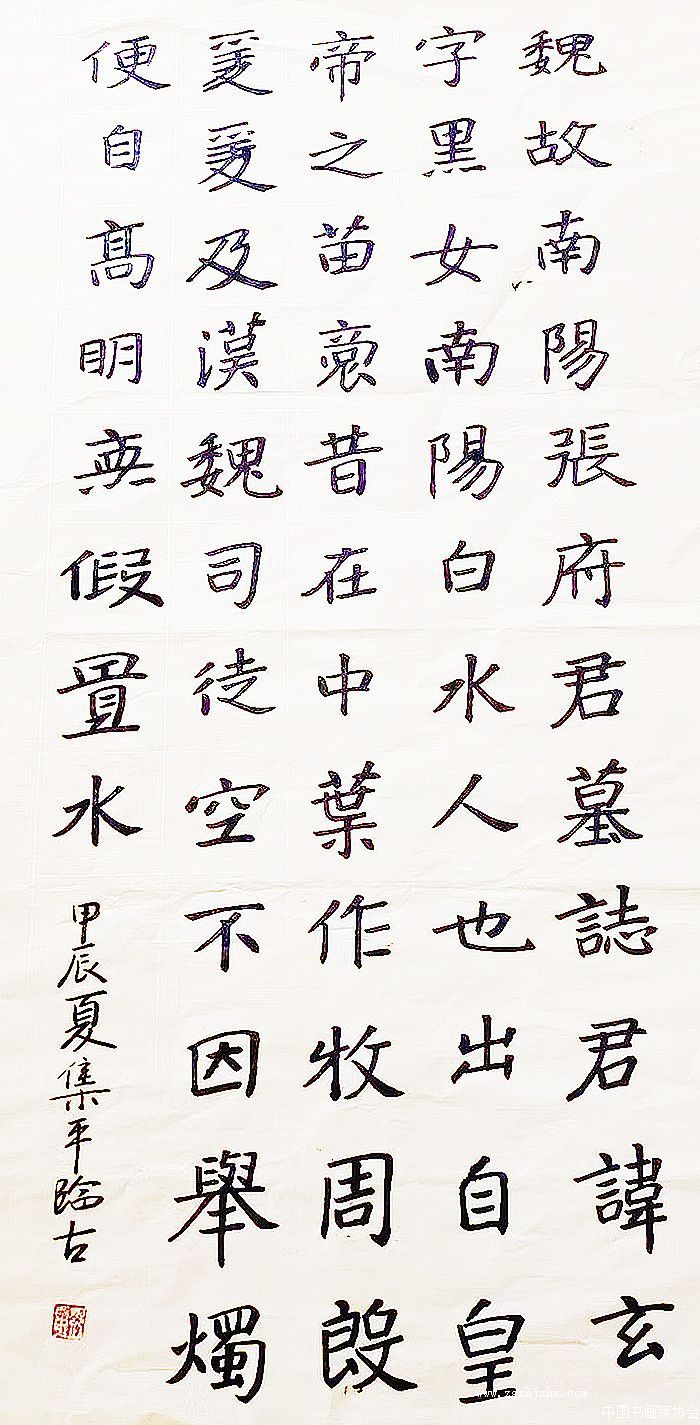 魏故南陽張府君墓誌君諱玄
字黑女南陽白水人也出自皇
帝之苗裔昔在中葉作牧周殷
爰爰及漢魏司徒空不因舉燭
便自髙明無假置水
甲辰夏集平臨古
中国书画家协会